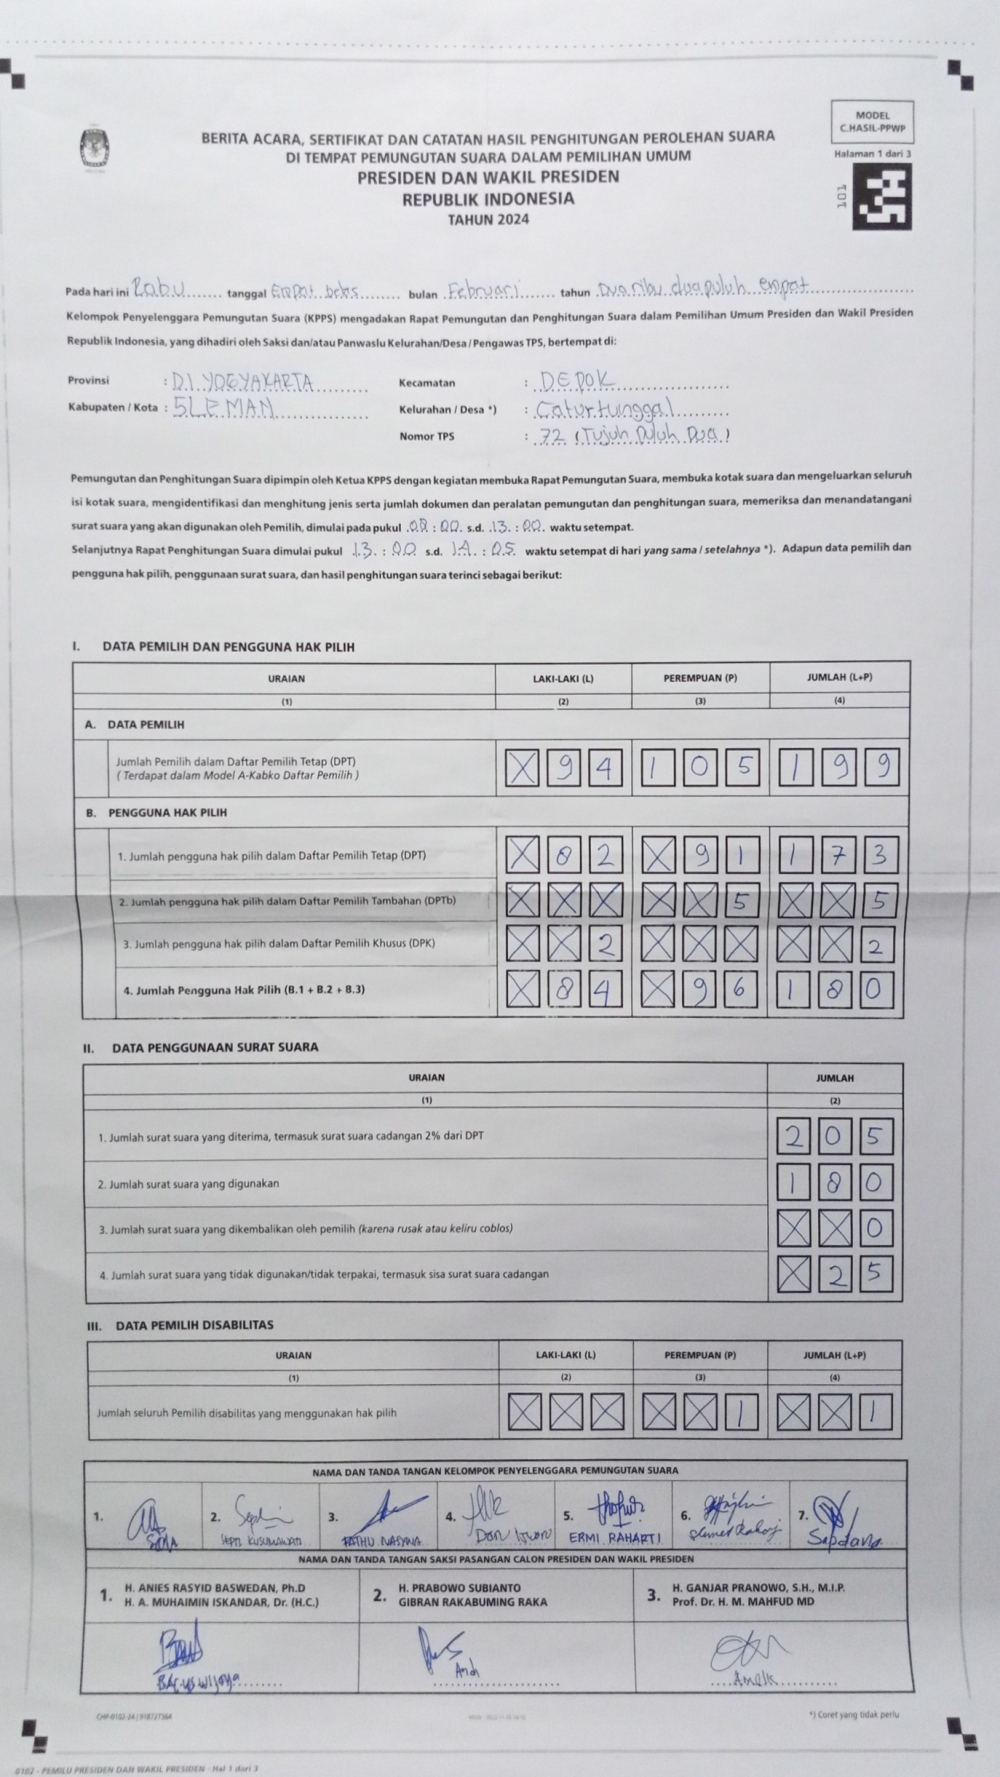 MODEL
C.HASIL-PPWP
Halaman 1 dari 3
101
BERITA ACARA, SERTIFIKAT DAN CATATAN HASIL PENGHITUNGAN PEROLEHAN SUARA
DI TEMPAT PEMUNGUTAN SUARA DALAM PEMILIHAN UMUM
PRESIDEN DAN WAKIL PRESIDEN
REPUBLIK INDONESIA
TAHUN 2024
Pada hari ini Rabu tanggal Empat belas bulan Februari tahun Dua ribu dua puluh empat
Kelompok Penyelenggara Pemungutan Suara (KPPS) mengadakan Rapat Pemungutan dan Penghitungan Suara dalam Pemilihan Umum Presiden dan Wakil Presiden
Republik Indonesia, yang dihadiri oleh Saksi dan/atau Panwaslu Kelurahan/Desa / Pengawas TPS, bertempat di:
Provinsi : D.I. YOGYAKARTA Kecamatan : DEPOK
Kabupaten / Kota : SLEMAN Kelurahan / Desa *) : Caturtunggal
Nomor TPS : 72 (Tujuh Puluh Dua)
Pemungutan dan Penghitungan Suara dipimpin oleh Ketua KPPS dengan kegiatan membuka Rapat Pemungutan Suara, membuka kotak suara dan mengeluarkan seluruh
isi kotak suara, mengidentifikasi dan menghitung jenis serta jumlah dokumen dan peralatan pemungutan dan penghitungan suara, memeriksa dan menandatangani
surat suara yang akan digunakan oleh Pemilih, dimulai pada pukul 08 : 00 s.d. 13 : 00 waktu setempat.
Selanjutnya Rapat Penghitungan Suara dimulai pukul 13 : 00 s.d. 14 : 05 waktu setempat di hari yang sama / setelahnya *). Adapun data pemilih dan
pengguna hak pilih, penggunaan surat suara, dan hasil penghitungan suara terinci sebagai berikut:
I. DATA PEMILIH DAN PENGGUNA HAK PILIH
URAIAN LAKI-LAKI (L) PEREMPUAN (P) JUMLAH (L+P)
(1) (2) (3) (4)
A. DATA PEMILIH
Jumlah Pemilih dalam Daftar Pemilih Tetap (DPT)
( Terdapat dalam Model A-Kabko Daftar Pemilih ) X 9 4 1 0 5 1 9 9
B. PENGGUNA HAK PILIH
1. Jumlah pengguna hak pilih dalam Daftar Pemilih Tetap (DPT) X 8 2 X 9 1 1 7 3
2. Jumlah pengguna hak pilih dalam Daftar Pemilih Tambahan (DPTb) X X X X X 5 X X 5
3. Jumlah pengguna hak pilih dalam Daftar Pemilih Khusus (DPK) X X 2 X X X X X 2
4. Jumlah Pengguna Hak Pilih (B.1 + B.2 + B.3) X 8 4 X 9 6 1 8 0
II. DATA PENGGUNAAN SURAT SUARA
URAIAN JUMLAH
(1) (2)
1. Jumlah surat suara yang diterima, termasuk surat suara cadangan 2% dari DPT 2 0 5
2. Jumlah surat suara yang digunakan 1 8 0
3. Jumlah surat suara yang dikembalikan oleh pemilih (karena rusak atau keliru coblos) X X 0
4. Jumlah surat suara yang tidak digunakan/tidak terpakai, termasuk sisa surat suara cadangan X 2 5
III. DATA PEMILIH DISABILITAS
URAIAN LAKI-LAKI (L) PEREMPUAN (P) JUMLAH (L+P)
(1) (2) (3) (4)
Jumlah seluruh Pemilih disabilitas yang menggunakan hak pilih X X X X X 1 X X 1
NAMA DAN TANDA TANGAN KELOMPOK PENYELENGGARA PEMUNGUTAN SUARA
1. 2. 3. 4. 5. 6. 7.
SEPTI KUSUMAWATI ERMI RAHARTI Sapdana
NAMA DAN TANDA TANGAN SAKSI PASANGAN CALON PRESIDEN DAN WAKIL PRESIDEN
1. H. ANIES RASYID BASWEDAN, Ph.D 2. H. PRABOWO SUBIANTO 3. H. GANJAR PRANOWO, S.H., M.I.P.
H. A. MUHAIMIN ISKANDAR, Dr. (H.C.) GIBRAN RAKABUMING RAKA Prof. Dr. H. M. MAHFUD MD
BAGUS WIJAYA
*) Coret yang tidak perlu
0102 - PEMILU PRESIDEN DAN WAKIL PRESIDEN - Hal 1 dari 3